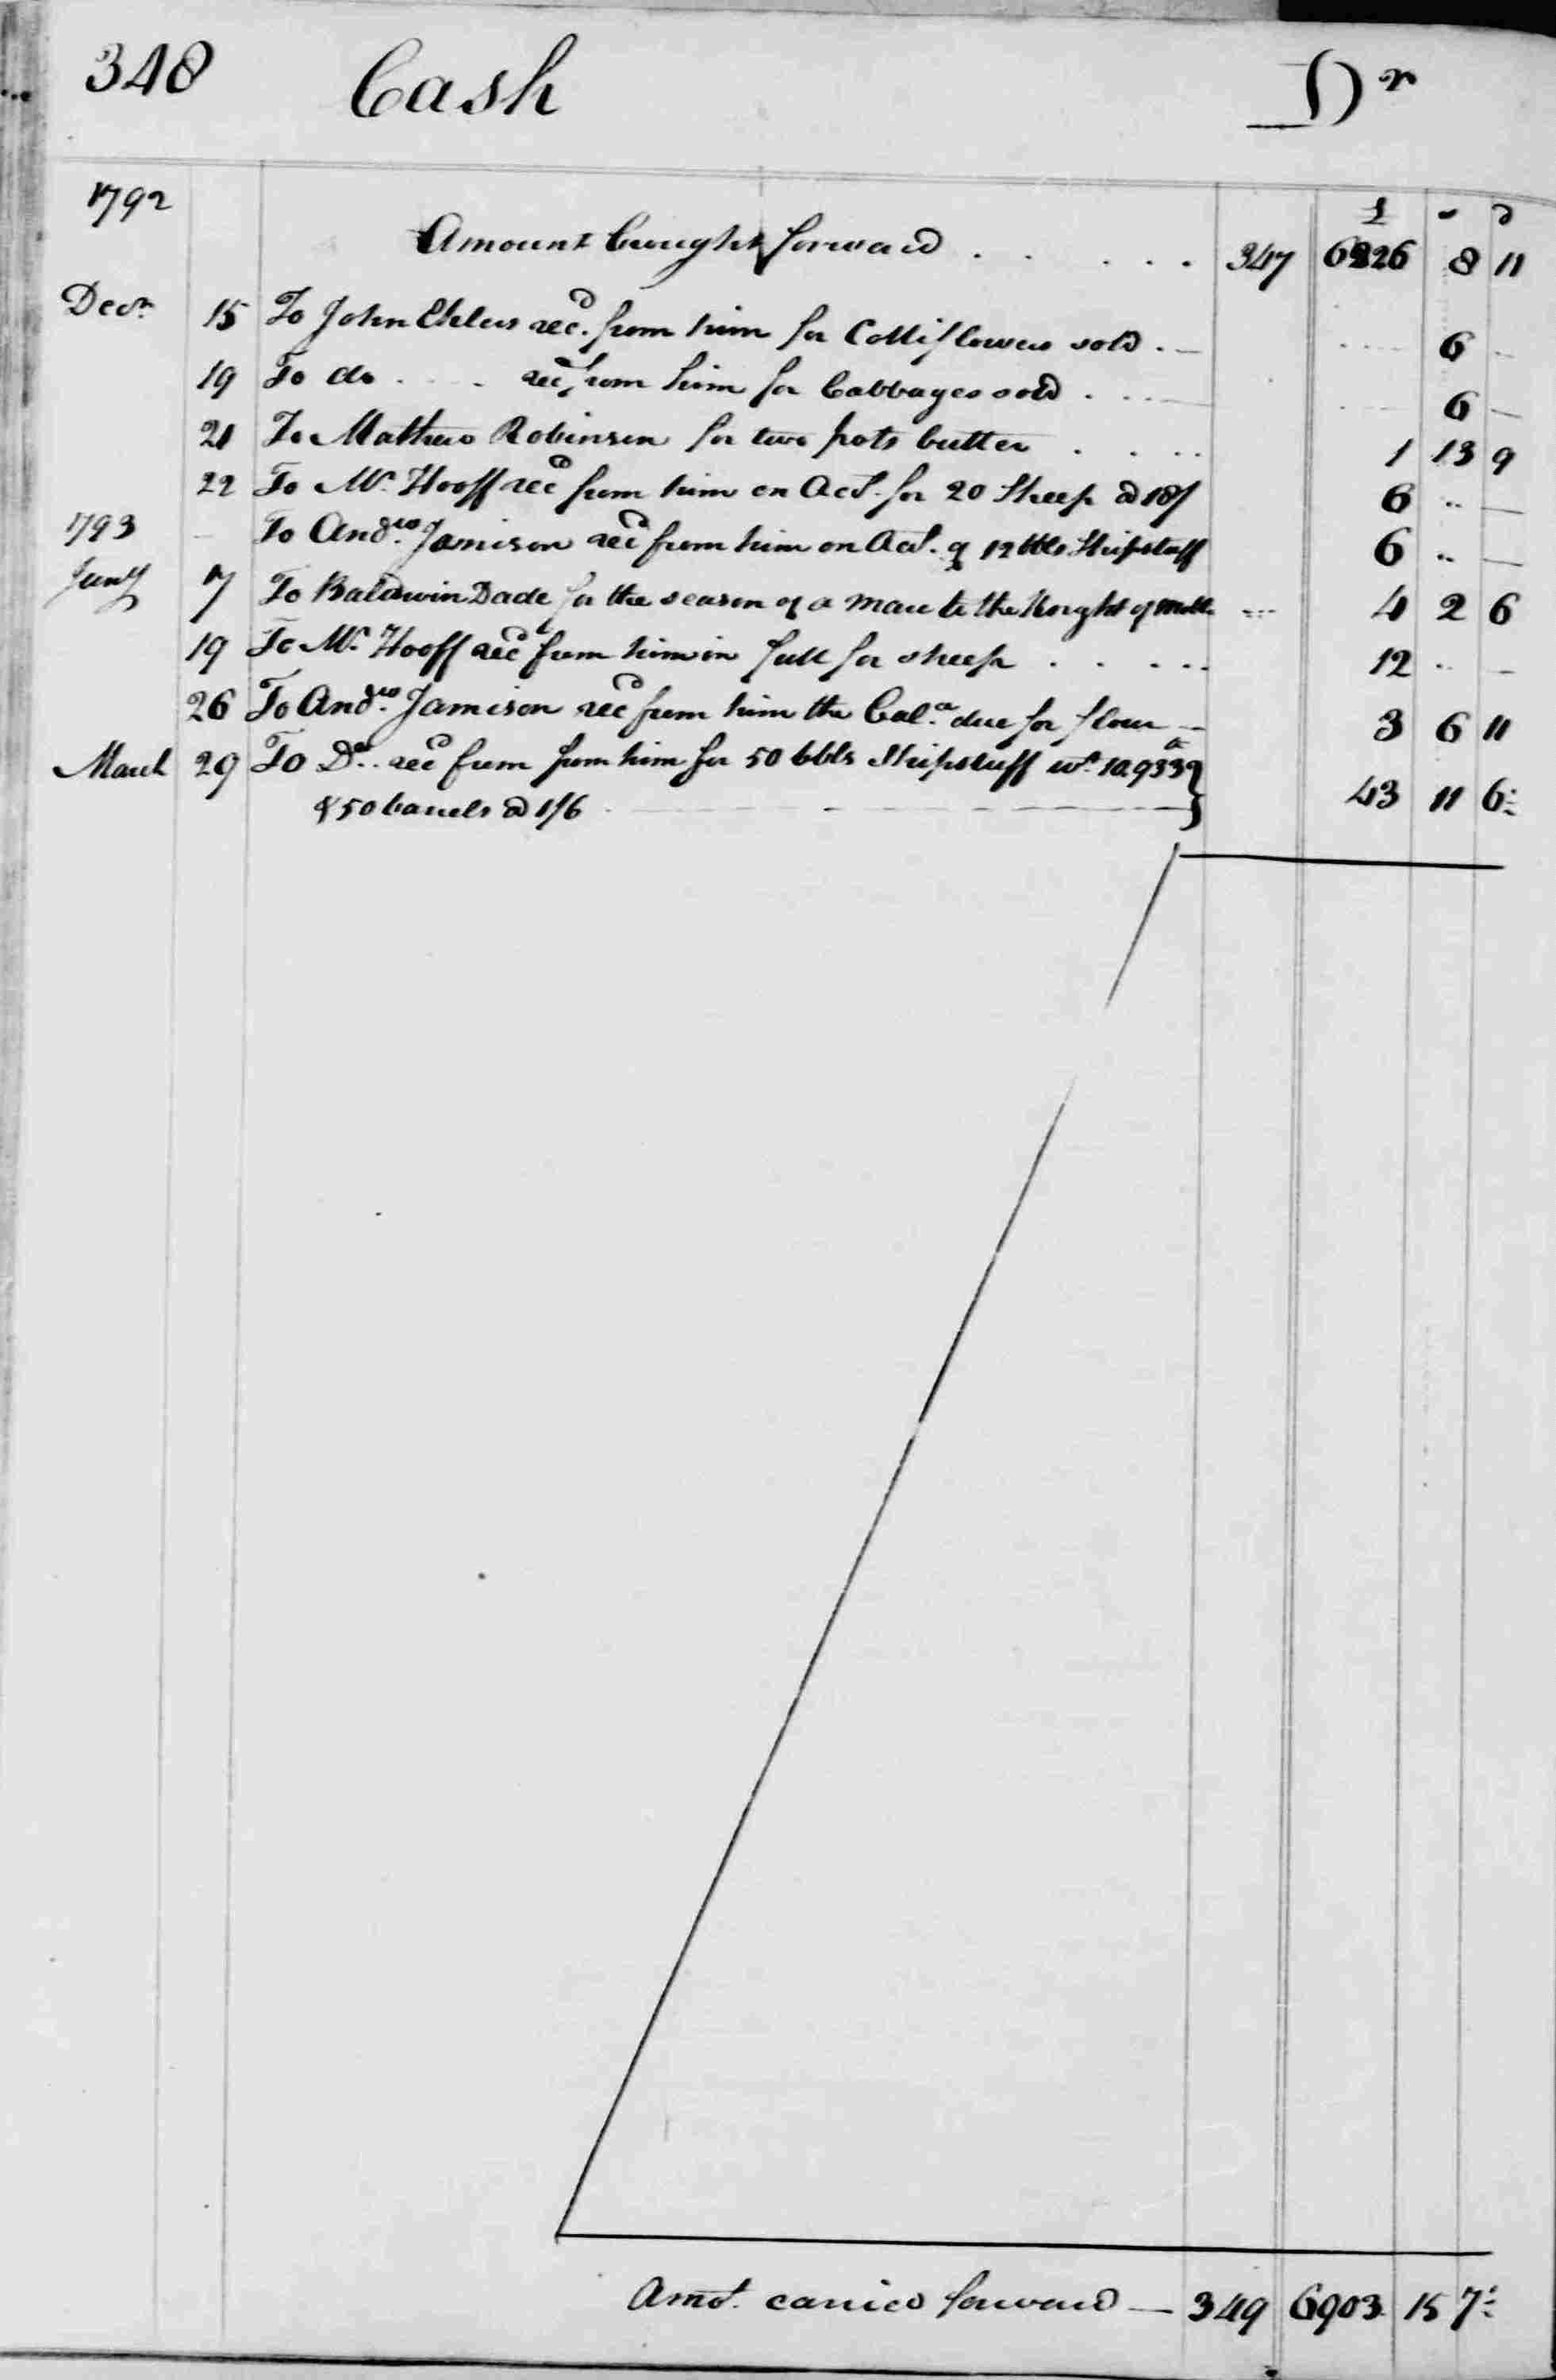 348 Cash Dr
1792
£ s d
Amount brought forward . . . . . . 347 6826 8 11
Decr 15 To John Ehlers recd. from him for Colliflowers sold . — 6 —
19 To do . . . . recd from him for Cabbages sold . . . — 6 —
21 To Mathew Robinson for two pots butter . . . . 1 13 9
22 To Mr. Hooff recd from him on Act. for 20 Sheep @ 18/ 6 .. —
1793 — To Andrew. Jamison recd from him on Act. of 12 bbls Shipstuff 6 .. —
Jany 7 To Baldwin Dade for the season of a mare to the Knight of Malta ... 4 2 6
19 To Mr. Hooff recd from him in full for sheep . . . . . 12 .. —
26 To Andrew. Jamison recd from him the Bala. due for flour — 3 6 11
March 29 To Do. recd from from him for 50 bbls Shipstuff wt. 10.933 lb
& 50 barrels @ 1/6 — 43 11 6
Amot. carried forward — 349 6903 15 7